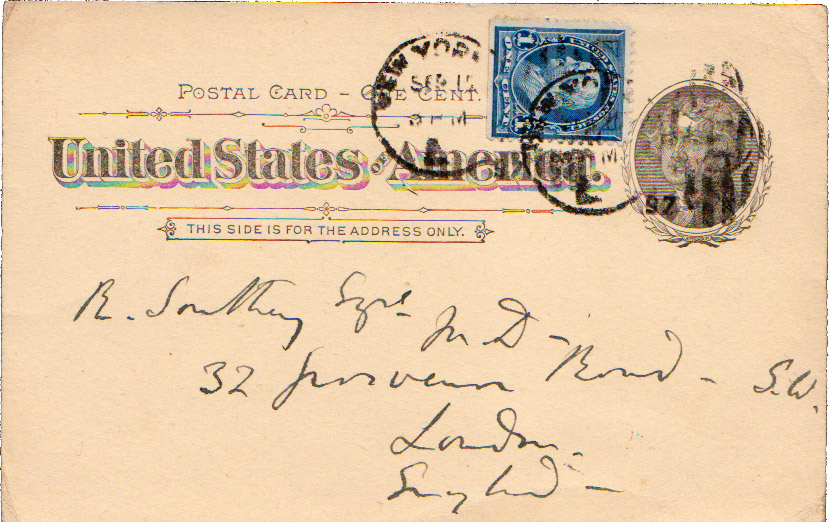 NEW YORK
SEP 15
POSTAL CARD – ONE CENT.
United States of America.
97
THIS SIDE IS FOR THE ADDRESS ONLY.
R. Southey Esqre M D –
32 Grosvenor Road – S.W.
London.
England –